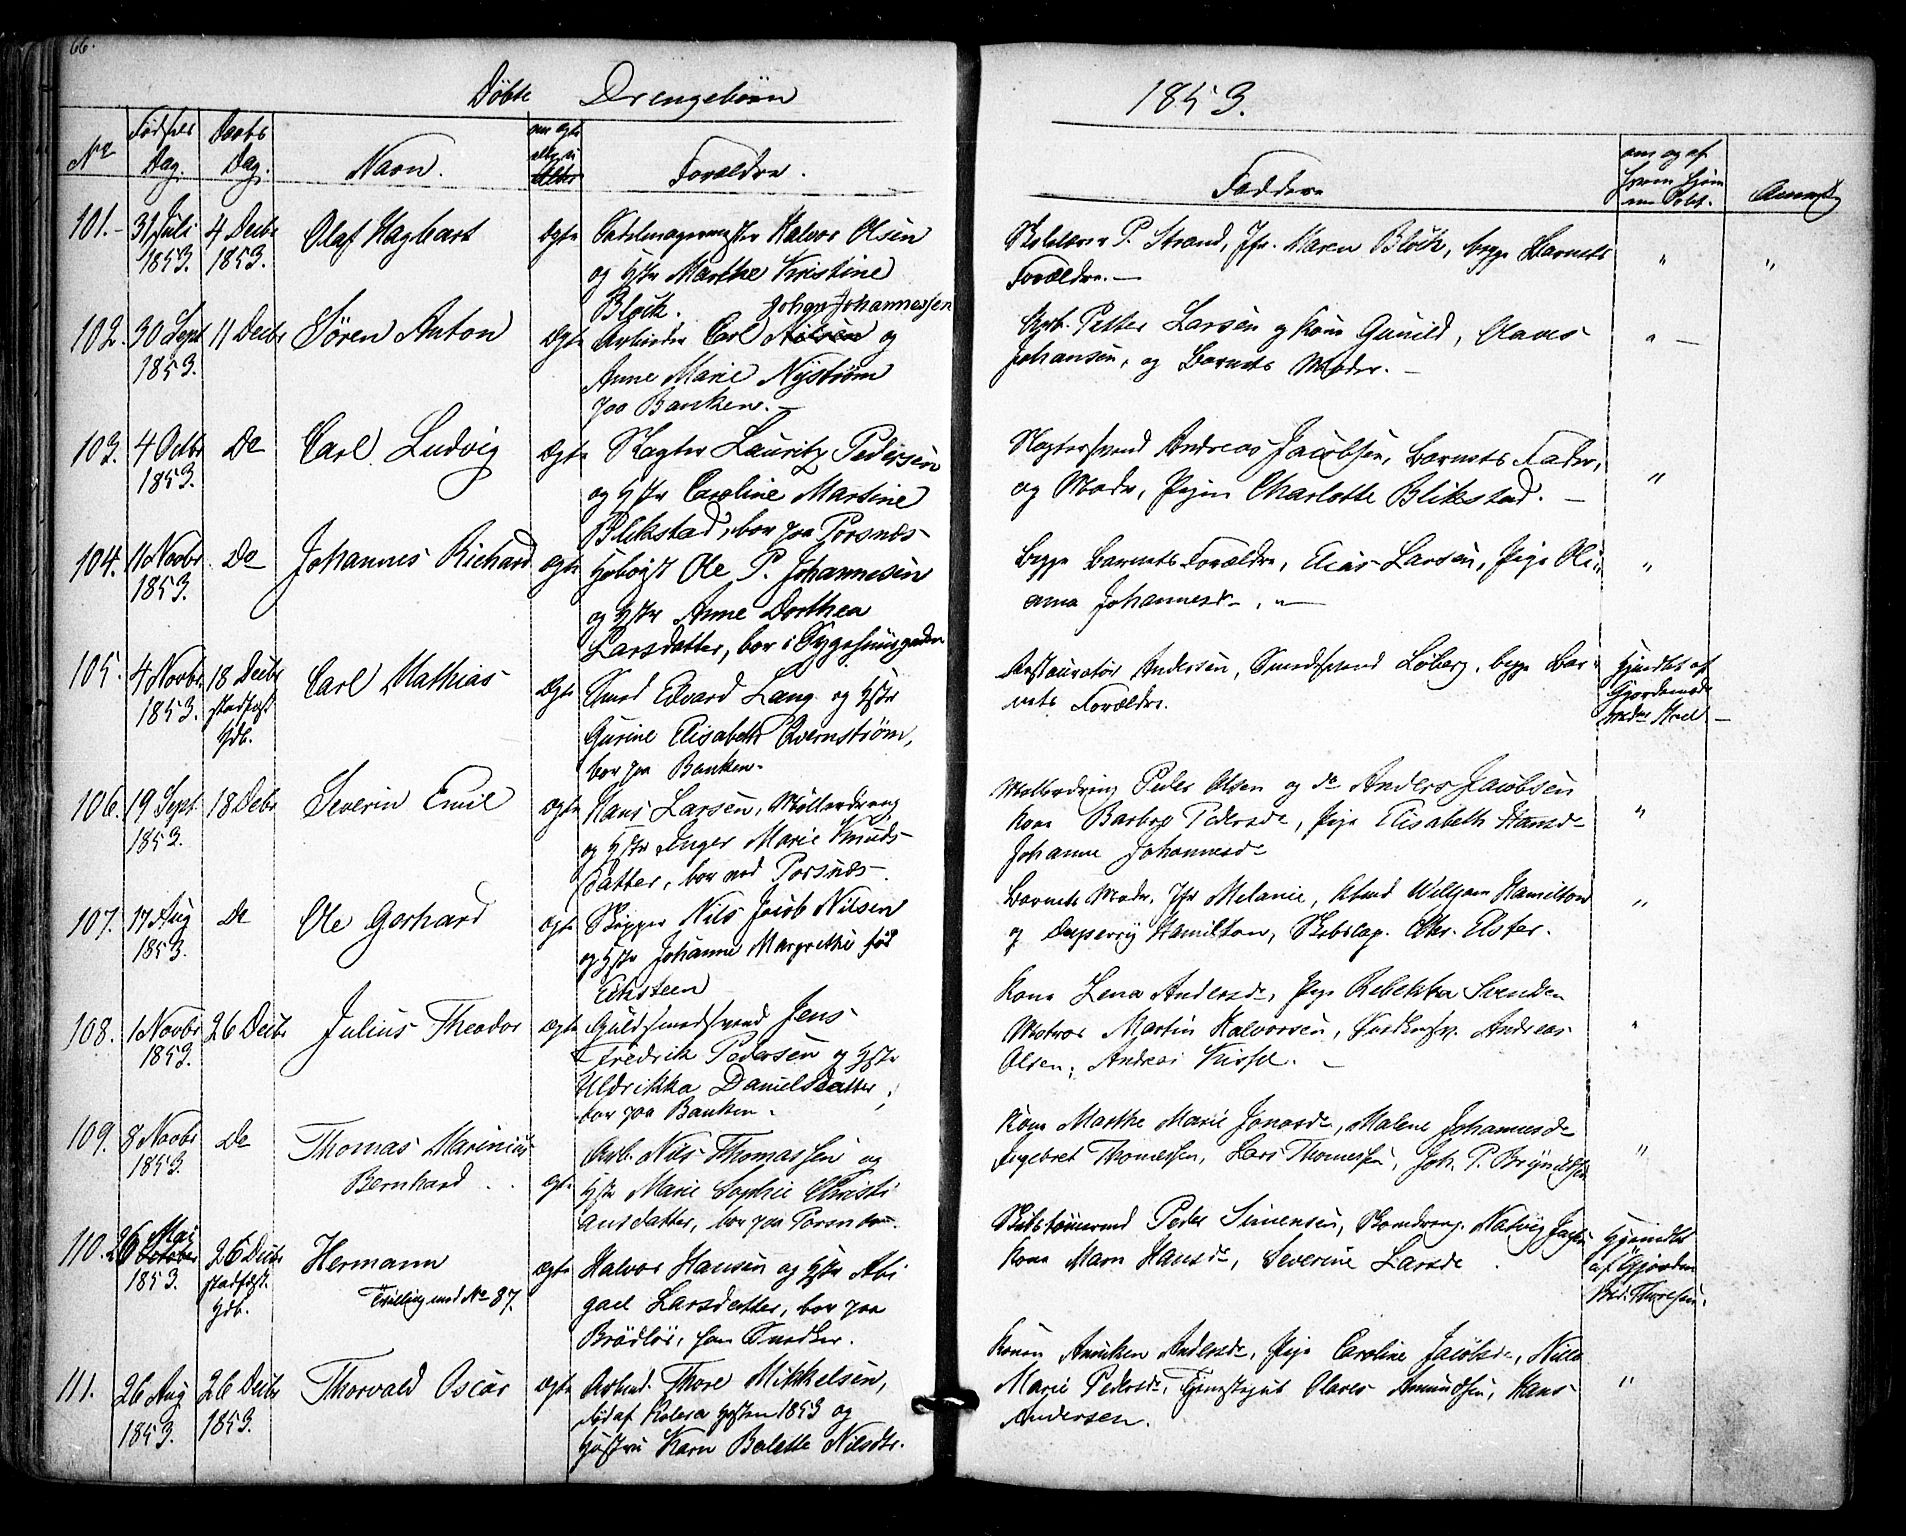 66.
Døbte Drengebörn
1853.
No
Födsels Dag.
Daabs Dag.
Navn.
om ægte eller u
Forældre.
Faddere
om og af hvem hjem
Anmk
101. 31 Juli 1853. 4 Decbr 1853. Olaf Hagbart ægte Sadelmagermester Halvor Olsen
og Hstr Marthe Kristine
Block.
Skolelærer P. Strand, Jfr. Maren Block, begge Barnets
Forældre. —
102. 30 Sept 1853. 11 Decbr Sören Anton ægte Arbeider Carl Nilsen og
Johan Johannessen
Anne Marie Nyström
paa Banken. —
Arb. Petter Larsen og Kone Gunild, Olaves
Johansen, og Barnets Moder. —
103. 4 Octbr 1853. Do Carl Ludvig ægte Slagter Lauritz Pedersen
og Hstr Caroline Martine
Blikstad, bor paa Torsnæs
Slagtersvend Andreas Jacobsen, Barnets Fader,
og Moder, Pigen Charlotte Blikstad. —
104. 1853. Do Johannes Richard ægte Ole P. Johannesen
og Hstr Anne Dorthea
Larsdatter, bor i Sygehuusgaden
Begge Barnets Forældre, Elias Larsen, Pige Oli
ana Johannesd
105. 4 Novbr 1853. 18 Decbr stadfæst Hdb. Carl Mathias ægte Edvard Lang og Hstr
Gurine Elisabeth Qvernström,
bor paa Banken.
Restauratör Andersen, Löberg, begge Bar
nets Forældre.
Hjemdöbt af
Gjordemoder
106. 19 Sept 1853. 18 Debr Severin Emil ægte Hans Larsen, Möllerdreng,
og Hstr Inger Marie Knuds
datter, bor ved Torsnæs.
Mollerdreng Peder Olsen og do Anders Jacobsen
Kone Barbro Pedersd, Pige Elisabeth Hansd
Johanne Johannesd
107. 17 Aug 1853. Do Ole Gerhard ægte Skipper Nils Jacob Nilsen
og Hstr Johanne Margrethe föd
Eeksteen
Barnets Moder, Jfr Melanie, William Hamilton
og Hamilton, Skibscap. Chr. Elster.
108. 1 Novbr 1853. 26 Decbr Julius Theodor ægte Guldsmedsvend Jens
Fredrik Pedersen og Hstr
Uldrikka Danielsdatter,
bor paa Banken.
Kone Lena Andersd, Pige Rebekka Svendsen
Matros Martin Halvorsen, Andreas
Olsen, Andreas —
109. 8 Novbr 1853. Do Thomas Marinius
Bernhard ægte
Arb. Nils Thomassen og
Hstr Marie Sophie Christi
ansdatter, bor paa Torsnæs.
Kone Marthe Marie Jonasd, Malene Johannesd
Ingebret Thomassen, Lars Thomassen, Joh. P. Bryndilsen
110. 26 October Mai 1853. 26 Decbr stadfæst. Hdb. Hermann
Tvilling med No 87.
ægte Halvor Hansen og Hstr Abi
gael Larsdatter, bor paa
Brödlös, han Snedker.
Skibstömmermand Peder Simensen,
Kone Maren Hansd, Severine Larsd
Hjemdöbt
af Gjorden
Thoresen.
111. 26 Aug 1853. 26 Decbr 1853. Thorvald Oscar ægte Arbmd. Thore Mikkelsen,
död af Kolera Hösten 1853 og
Hustru Karn Bolette Nilsdtr.
Konen Anniken Andersd, Pige Caroline Jacobsd, Nille
Marie Pedersd, Olaves Amundsen, Hans
Andersen.